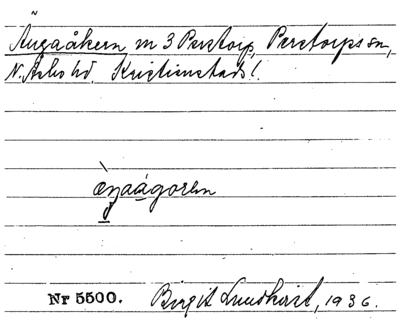 Ängaåkern m 3 Perstorp, Perstorps sn,
N. Åsbo hd. Kristianstads l.
æŋaágorən
Nr 5500. Birgit Lundkvist, 1936.